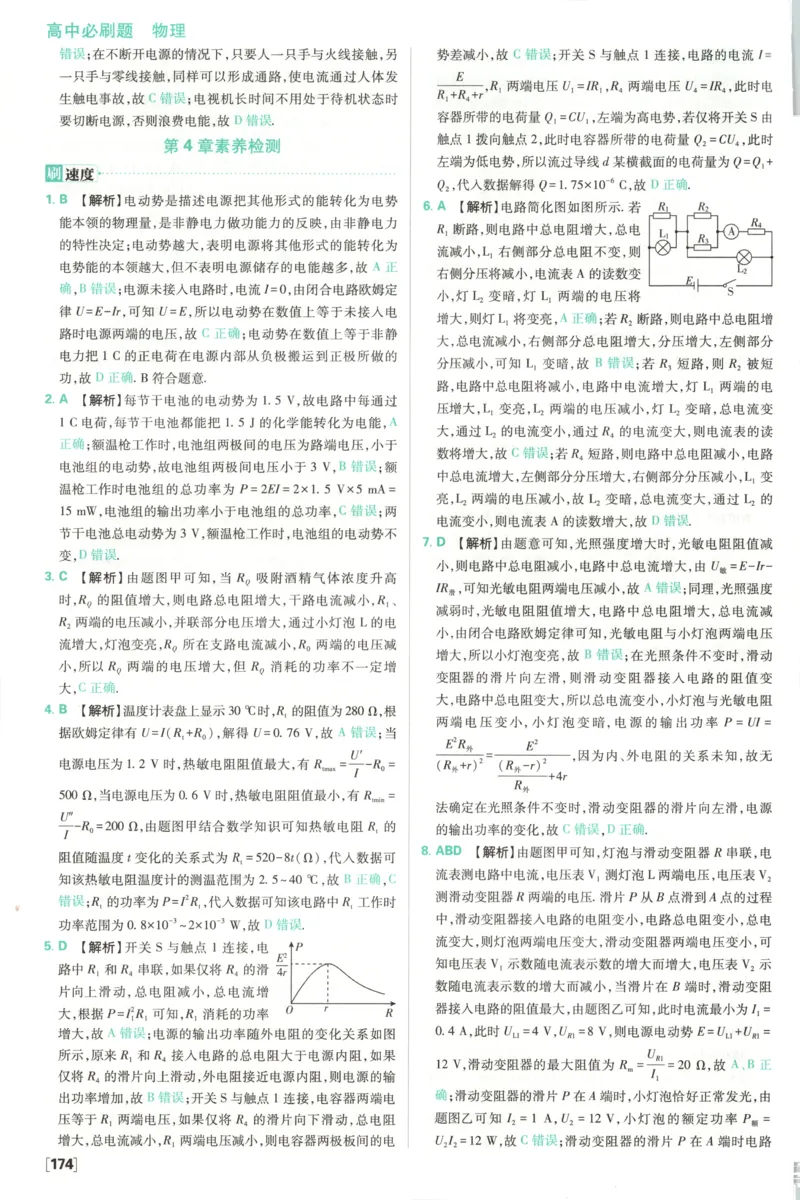 高中必刷题 物理
错误;在不断开电源的情况下,只要人一只手与火线接触,另
一只手与零线接触,同样可以形成通路,使电流通过人体发
生触电事故,故 C 错误;电视机长时间不用处于待机状态时
要切断电源,否则浪费电能,故 D 错误.
第 4 章素养检测
刷 速度
1. B 【解析】电动势是描述电源把其他形式的能转化为电势
能本领的物理量,是非静电力做功能力的反映,由非静电力
的特性决定;电动势越大,表明电源将其他形式的能转化为
电势能的本领越大,但不表明电源储存的电能越多,故 A 正
确,B 错误;电源未接入电路时,电流 I=0,由闭合电路欧姆定
律 U=E-Ir,可知 U=E,所以电动势在数值上等于未接入电
路时电源两端的电压,故 C 正确;电动势在数值上等于非静
电力把 1 C 的正电荷在电源内部从负极搬运到正极所做的
功,故 D 正确. B 符合题意.
2. A 【解析】每节干电池的电动势为 1. 5 V,故电路中每通过
1 C 电荷,每节干电池都能把 1. 5 J 的化学能转化为电能,A
正确;额温枪工作时,电池组两极间的电压为路端电压,小于
电池组的电动势,故电池组两极间电压小于 3 V,B 错误;额
温枪工作时电池组的总功率为 P=2EI=2×1. 5 V×5 mA=
15 mW,电池组的输出功率小于电池组的总功率,C 错误;两
节干电池总电动势为 3 V,额温枪工作时,电池组的电动势不
变,D 错误.
3. C 【解析】由题图甲可知,当 R_Q 吸附酒精气体浓度升高
时,R_Q 的阻值增大,则电路总电阻增大,干路电流减小,R₁、
R₂ 两端的电压减小,并联部分电压增大,通过小灯泡 L 的电
流增大,灯泡变亮,R_Q 所在支路电流减小,R₀ 两端的电压减
小,所以 R_Q 两端的电压增大,但 R_Q 消耗的功率不一定增
大,C 正确.
4. B 【解析】温度计表盘上显示 30 ℃时,Rₜ 的阻值为 280 Ω,根
据欧姆定律有 U=I(Rₜ+R₀),解得 U=0. 76 V,故 A 错误;当
电源电压为 1. 2 V 时,热敏电阻阻值最大,有 R_tmax=U′/I-R₀=
500 Ω,当电源电压为 0. 6 V 时,热敏电阻阻值最小,有 R_tmin=
U″/I-R₀=200 Ω,由题图甲结合数学知识可知热敏电阻 Rₜ 的
阻值随温度 t 变化的关系式为 Rₜ=520-8t(Ω),代入数据可
知该热敏电阻温度计的测温范围为 2. 5~40 ℃,故 B 正确,C
错误;Rₜ 的功率为 P=I²Rₜ,代入数据可知该电路中 Rₜ 工作时
功率范围为 0. 8×10⁻³~2×10⁻³ W,故 D 错误.
5. D 【解析】开关 S 与触点 1 连接,电
路中 R₁ 和 R₄ 串联,如果仅将 R₄ 的滑
片向上滑动,总电阻减小,总电流增
大,根据 P=I₁²R₁ 可知,R₁ 消耗的功率
P
E²/4r
O r R
增大,故 A 错误;电源的输出功率随外电阻的变化关系如图
所示,原来 R₁ 和 R₄ 接入电路的总电阻大于电源内阻,如果
仅将 R₄ 的滑片向上滑动,外电阻接近电源内阻,则电源的输
出功率增加,故 B 错误;开关 S 与触点 1 连接,电容器两端电
压等于 R₁ 两端电压,如果仅将 R₄ 的滑片向下滑动,总电阻
增大,总电流减小,R₁ 两端电压减小,则电容器两极板间的电
[174]
势差减小,故 C 错误;开关 S 与触点 1 连接,电路的电流 I=
E/(R₁+R₄+r),R₁ 两端电压 U₁=IR₁,R₄ 两端电压 U₄=IR₄,此时电
容器所带的电荷量 Q₁=CU₁,左端为高电势,若仅将开关 S 由
触点 1 拨向触点 2,此时电容器所带的电荷量 Q₂=CU₄,此时
左端为低电势,所以流过导线 d 某横截面的电荷量为 Q=Q₁+
Q₂,代入数据解得 Q=1. 75×10⁻⁶ C,故 D 正确.
6. A 【解析】电路简化图如图所示. 若
R₁ 断路,则电路中总电阻增大,总电
流减小,L₁ 右侧部分总电阻不变,则
右侧分压将减小,电流表 A 的读数变
小,灯 L₂ 变暗,灯 L₁ 两端的电压将
R₁ R₂ R₄
L₁ R₃ A
L₂
E S
增大,则灯 L₁ 将变亮,A 正确;若 R₂ 断路,则电路中总电阻增
大,总电流减小,右侧部分总电阻增大,分压增大,左侧部分
分压减小,可知 L₁ 变暗,故 B 错误;若 R₃ 短路,则 R₂ 被短
路,电路中总电阻将减小,电路中电流增大,灯 L₁ 两端的电
压增大,L₁ 变亮,L₂ 两端的电压减小,灯 L₂ 变暗,总电流变
大,通过 L₂ 的电流变小,通过 R₄ 的电流变大,则电流表的读
数将增大,故 C 错误;若 R₄ 短路,则电路中总电阻减小,电路
中总电流增大,左侧部分分压增大,右侧部分分压减小,L₁ 变
亮,L₂ 两端的电压减小,故 L₂ 变暗,总电流变大,通过 L₂ 的
电流变小,则电流表 A 的读数增大,故 D 错误.
7. D 【解析】由题意可知,光照强度增大时,光敏电阻阻值减
小,则电路中总电阻减小,电路中总电流增大,由 U敏=E-Ir-
IR滑,可知光敏电阻两端电压减小,故 A 错误;同理,光照强度
减弱时,光敏电阻阻值增大,电路中总电阻增大,总电流减
小,由闭合电路欧姆定律可知,光敏电阻与小灯泡两端电压
增大,所以小灯泡变亮,故 B 错误;在光照条件不变时,滑动
变阻器的滑片向左滑,则滑动变阻器接入电路的阻值变
大,电路中总电阻变大,所以总电流变小,小灯泡与光敏电阻
两端电压变小,小灯泡变暗,电源的输出功率 P=UI=
E²R外/(R外+r)²=E²/((R外-r)²/R外+4r),因为内、外电阻的关系未知,故无
法确定在光照条件不变时,滑动变阻器的滑片向左滑,电源
的输出功率的变化,故 C 错误,D 正确.
8. ABD 【解析】由题图甲可知,灯泡与滑动变阻器 R 串联,电
流表测电路中电流,电压表 V₁ 测灯泡 L 两端电压,电压表 V₂
测滑动变阻器 R 两端的电压. 滑片 P 从 B 点滑到 A 点的过程
中,滑动变阻器接入电路的电阻变小,电路总电阻变小,总电
流变大,则灯泡两端电压变大,滑动变阻器两端电压变小,可
知电压表 V₁ 示数随电流表示数的增大而增大,电压表 V₂ 示
数随电流表示数的增大而减小,当滑片在 B 端时,滑动变阻
器接入电路的阻值最大,由题图乙可知,此时电流最小为 I₁=
0. 4 A,此时 U_L1=4 V,U_R1=8 V,则电源电动势 E=U_L1+U_R1=
12 V,滑动变阻器的最大阻值为 Rₘ=U_R1/I₁=20 Ω,故 A、B 正
确;滑动变阻器的滑片 P 在 A 端时,小灯泡恰好正常发光,由
题图乙可知 I₂=1 A,U₂=12 V,小灯泡的额定功率 P额=
U₂I₂=12 W,故 C 错误;滑动变阻器的滑片 P 在 A 端时电路